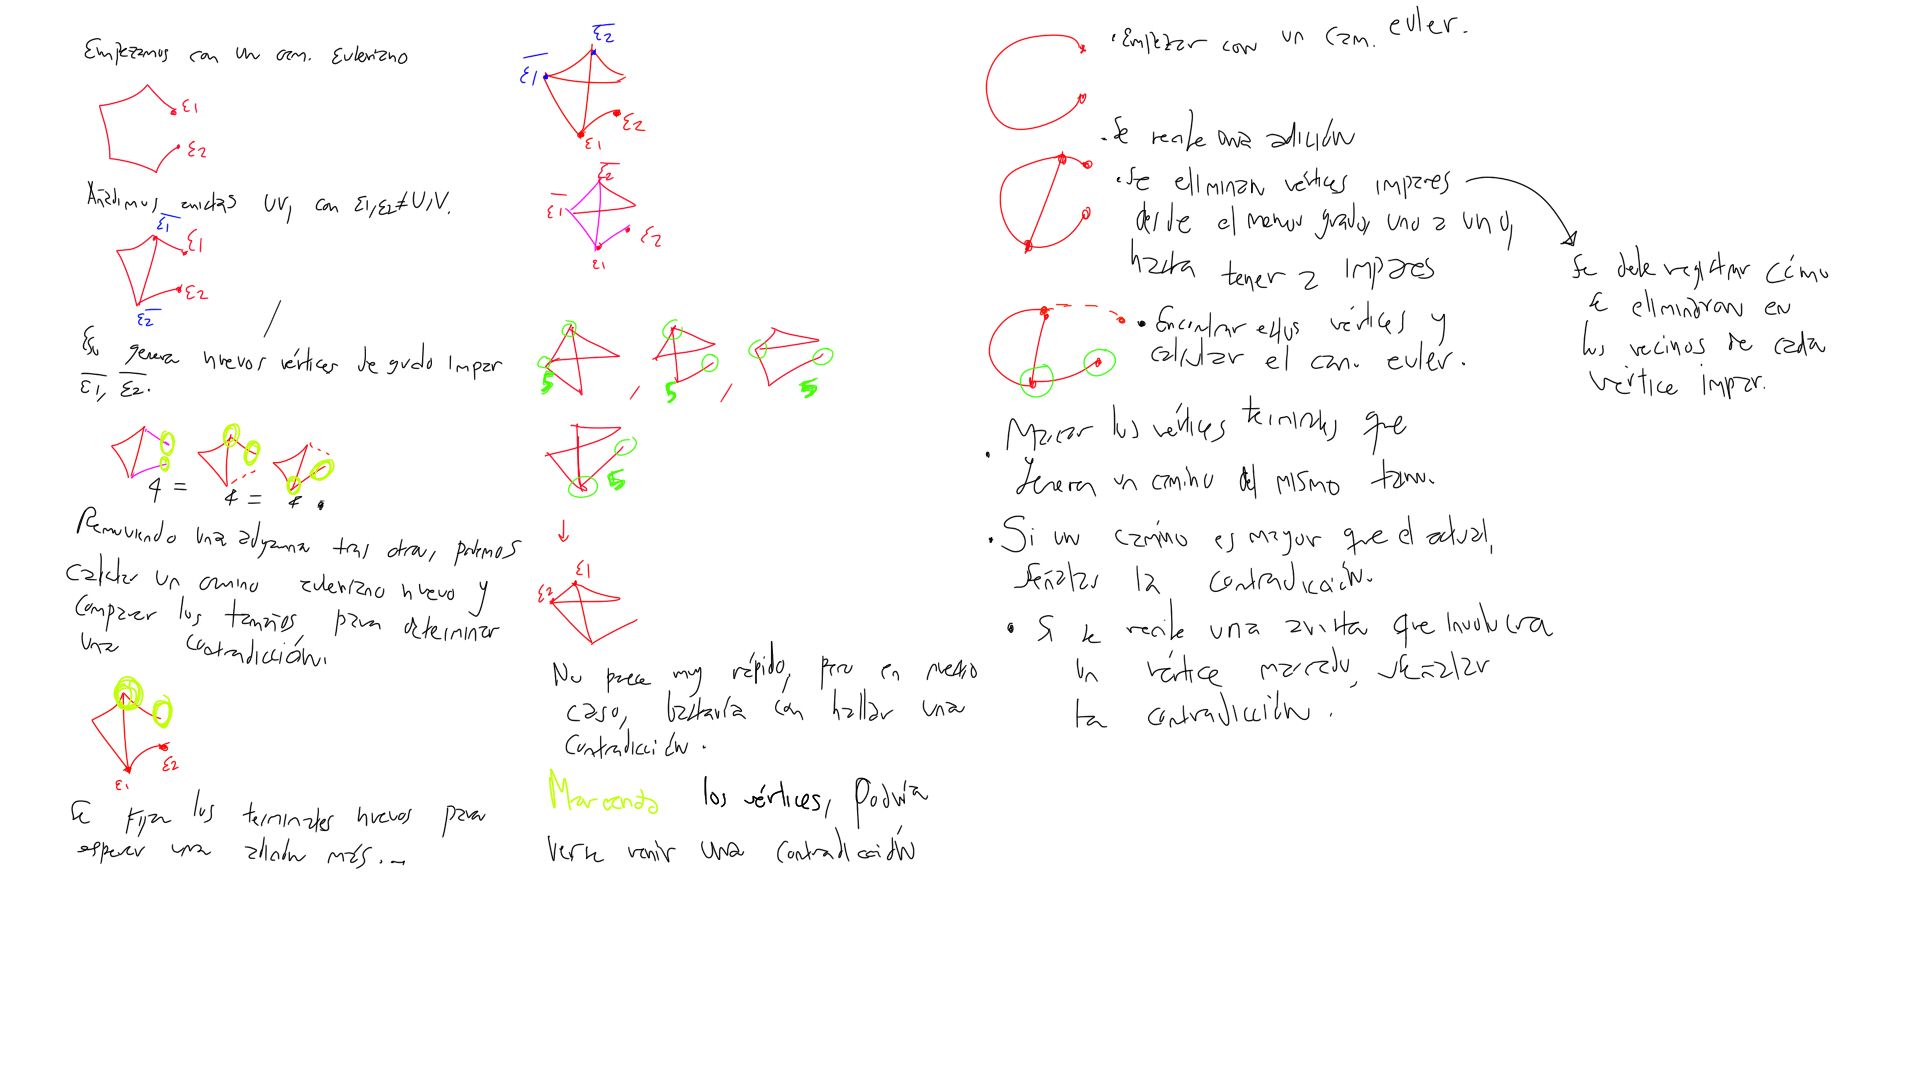 Empezamos con un cam. Euleriano
ε1
ε2
Añadimos aristas UV, con ε1,ε2≠U,V.
ε1
ε1
ε2
ε2
Eso genera nuevos vértices de grado impar
ε1, ε2.
4 = 4 = 4.
Removiendo una adyacencia tras otra, podemos
calcular un camino euleriano nuevo y
comparar los tamaños para determinar
una contradicción.
ε1
ε2
Se fijan los terminales nuevos para
esperar una adición más...
ε2
ε1
ε2
ε1
ε2
ε1
ε2
ε1
5 , 5 , 5
5
↓
ε1
ε2
No parece muy rápido, pero en nuestro
caso, bastaría con hallar una
contradicción.
Marcando los vértices, Podría
verse venir una contradicción
• Empezar con un cam. euler.
• Se recibe una adición
• Se eliminan vértices impares
desde el menor grado, uno a uno,
hasta tener 2 impares
Se debe registrar cómo
se eliminaron en
los vecinos de cada
vértice impar.
• Encontrar estos vértices y
calcular el cam. euler.
• Marcar los vértices terminales que
generan un camino del mismo tam.
• Si un camino es mayor que el actual,
señalar la contradicción.
• Si se recibe una arista que involucra
un vértice marcado, señalar
la contradicción.